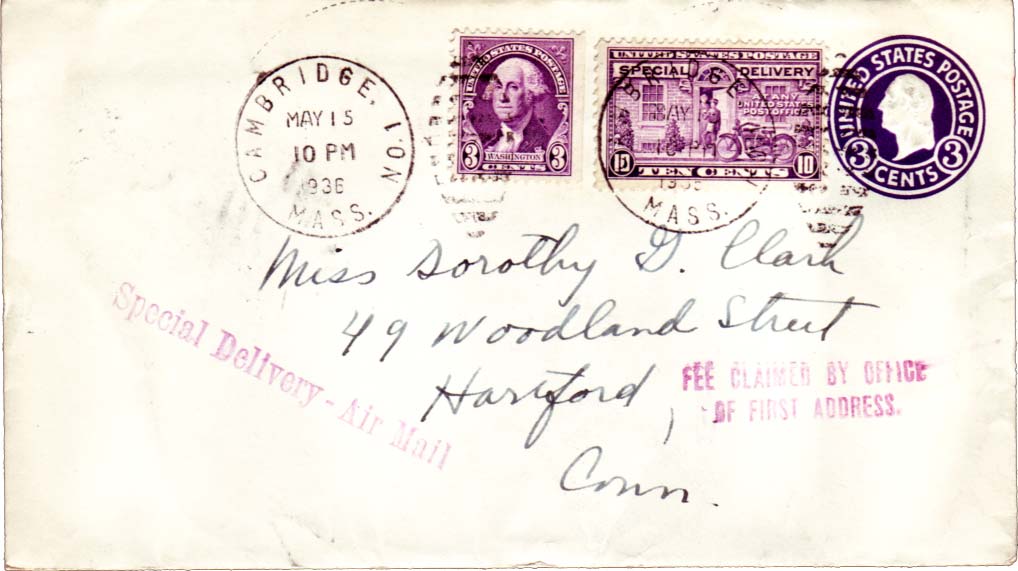 CAMBRIDGE, 1'ON
MAY 15
10 PM
1936
MASS.
UNITED STATES POSTAGE
3 WASHINGTON 3
CENTS
UNITED STATES POSTAGE
SPECIAL DELIVERY
ANY
UNITED STATES
POST OFFICE
10
TEN CENTS
MASS.
UNITED STATES POSTAGE
3 CENTS 3
Miss Dorothy G. Clark
49 Woodland Street
Hartford,
Conn.
Special Delivery - Air Mail
FEE CLAIMED BY OFFICE
OF FIRST ADDRESS.